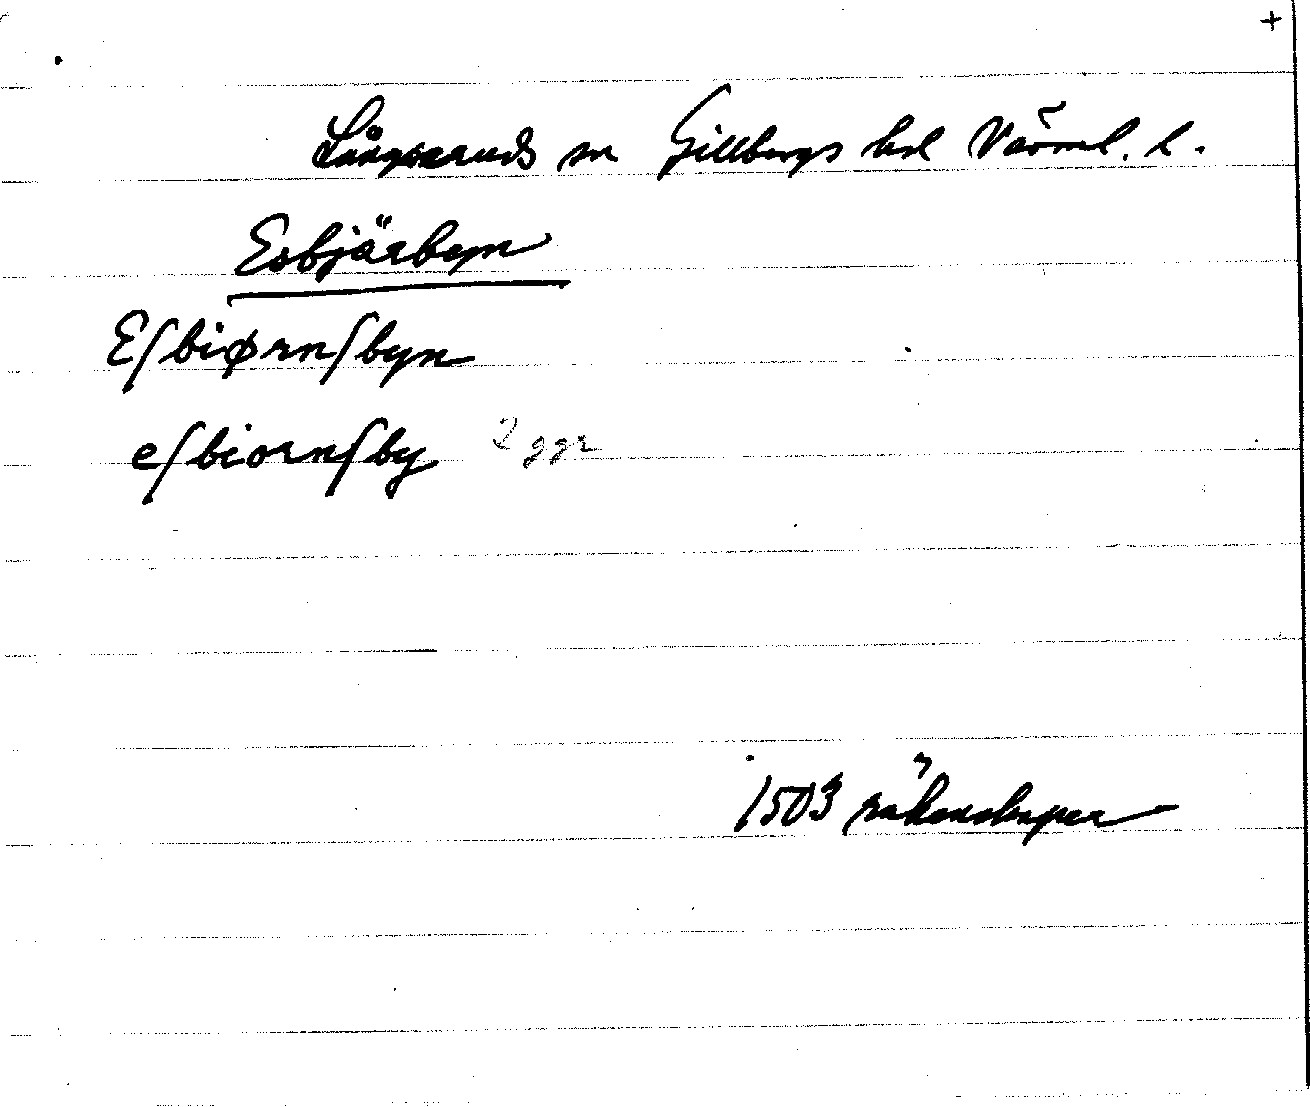 +
Långseruds sn Gillbergs hd Värml. l.
Esbjärbyn
Eſbiørnſbyn
eſbiornſby 2 ggr
1503 räkenskaper